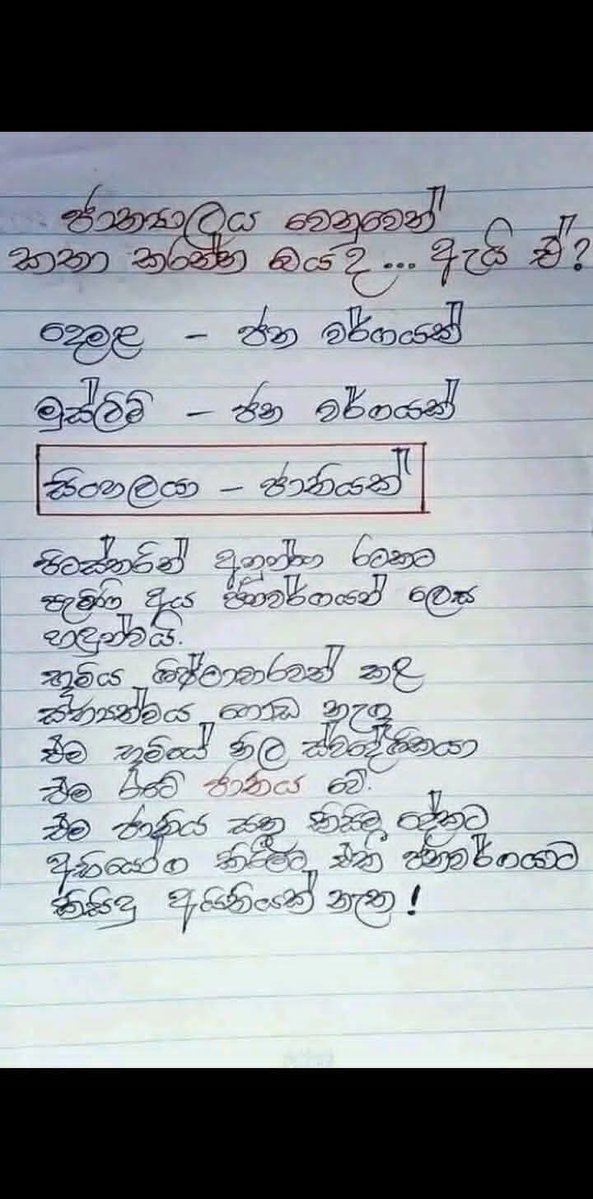 ජාත්‍යාලය වෙනුවෙන්
කතා කරන්න බය ද ... ඇයි ඒ?
දෙමළ - ජන වර්ගයක්
මුස්ලිම් - ජන වර්ගයක්
සිංහලයා - ජාතියක්
පිටස්තරින් අනුන්ගෙ රටකට
පැමිණි අය ජනවර්ගයන් ලෙස
හඳුන්වයි.
භූමිය ශිෂ්ටාචාරවත් කළ
සභ්‍යත්වය ගොඩ නැගූ
ඒම භූමියේ නිල ස්වදේශිකයා
ඒම රටේ ජාතිය වේ.
ඒම ජාතිය සතු කිසිම දේකට
අභියෝග කිරීමට ඒකී ජනවර්ගයාට
කිසිදු අයිතියක් නැත !